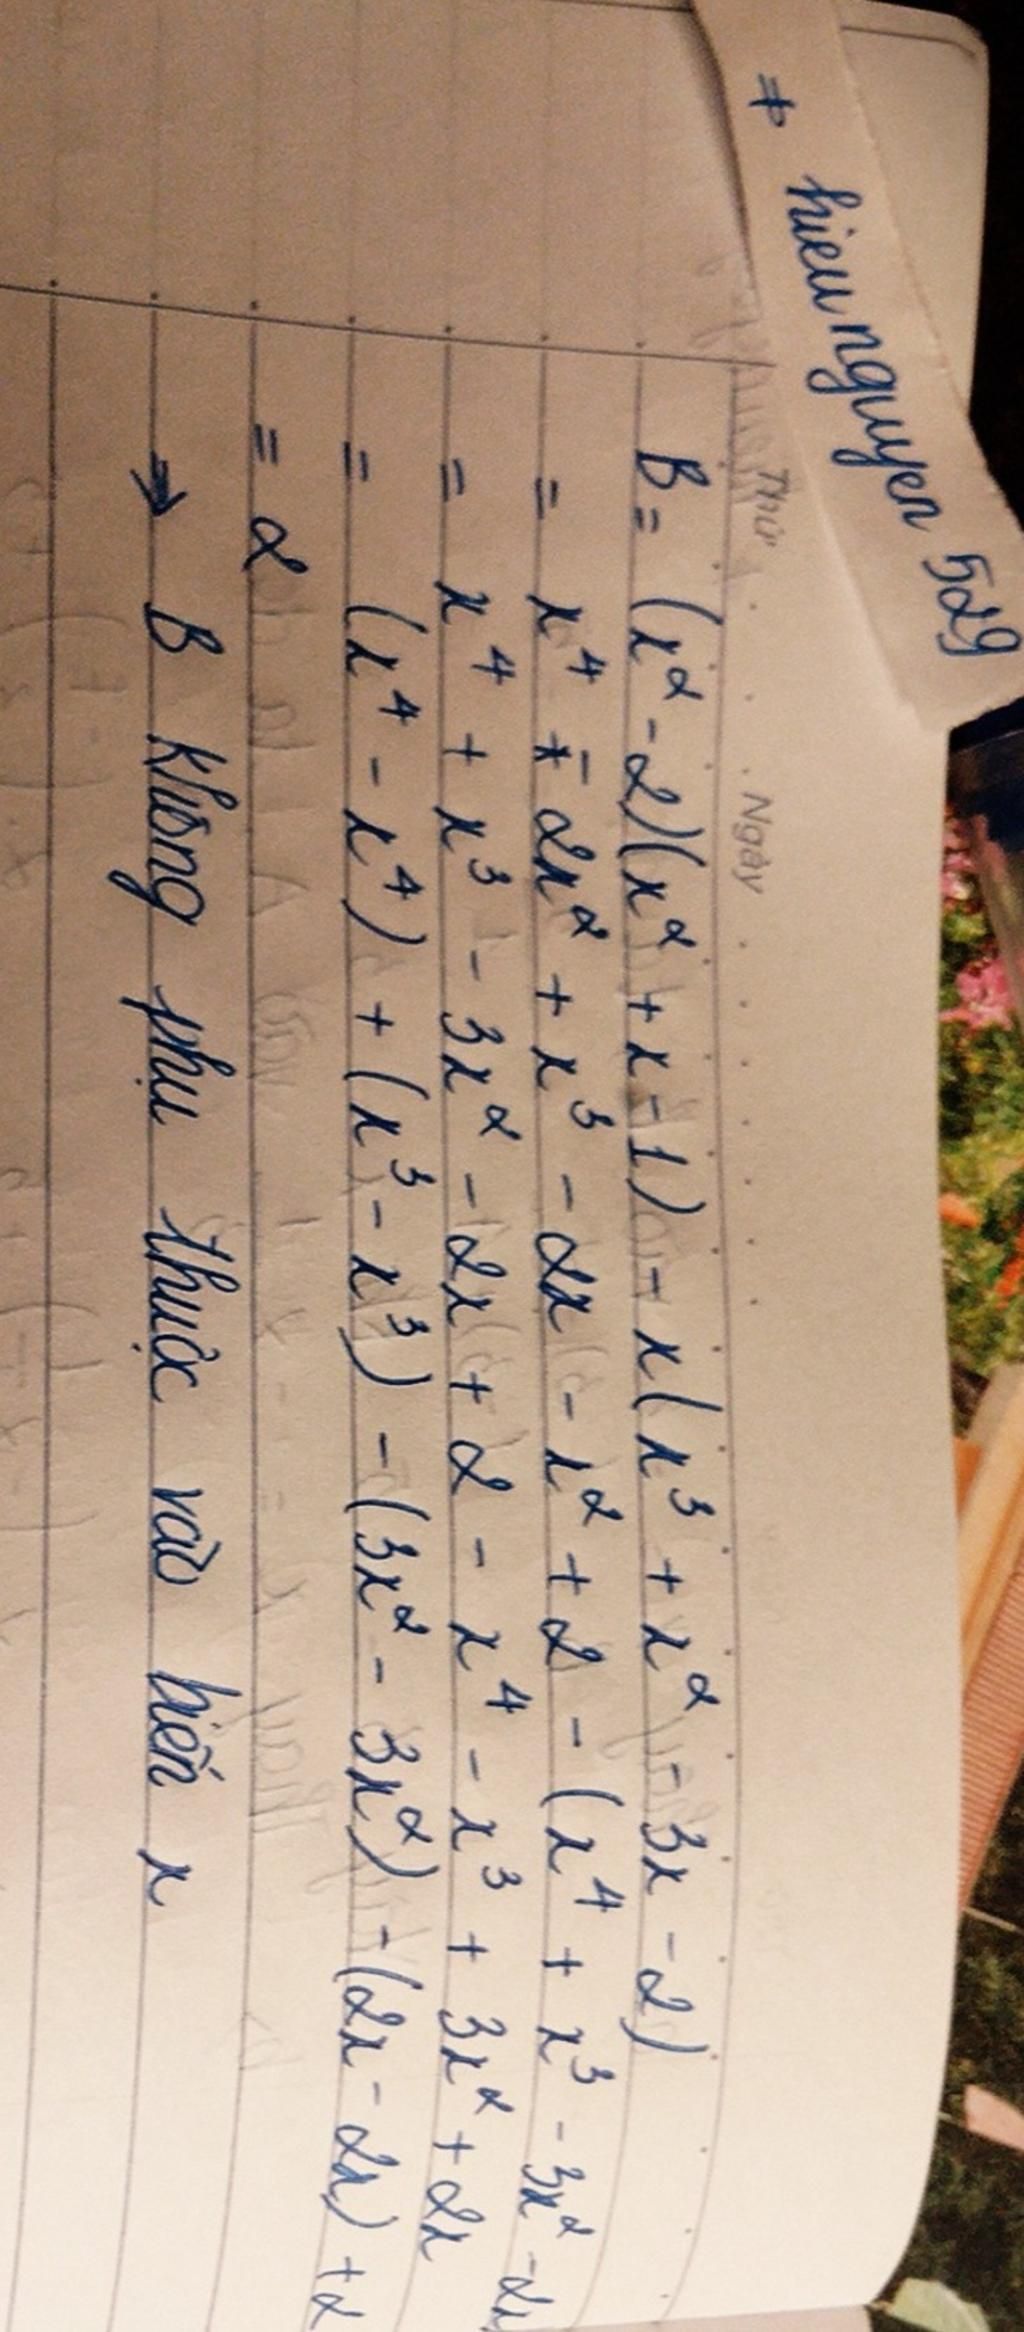 ⇒ hieu nguyen 529
Thứ . . Ngày . . . . . .
B = (x² - 2)(x² + x - 1) - x(x³ + x² - 3x - 2)
= x⁴ - 2x² + x³ - 2x - x² + 2 - (x⁴ + x³ - 3x² - 2x
= x⁴ + x³ - 3x² - 2x + 2 - x⁴ - x³ + 3x² + 2x
= (x⁴ - x⁴) + (x³ - x³) - (3x² - 3x²) - (2x - 2x) + 2
= 2
⇒ B không phụ thuộc vào biến x